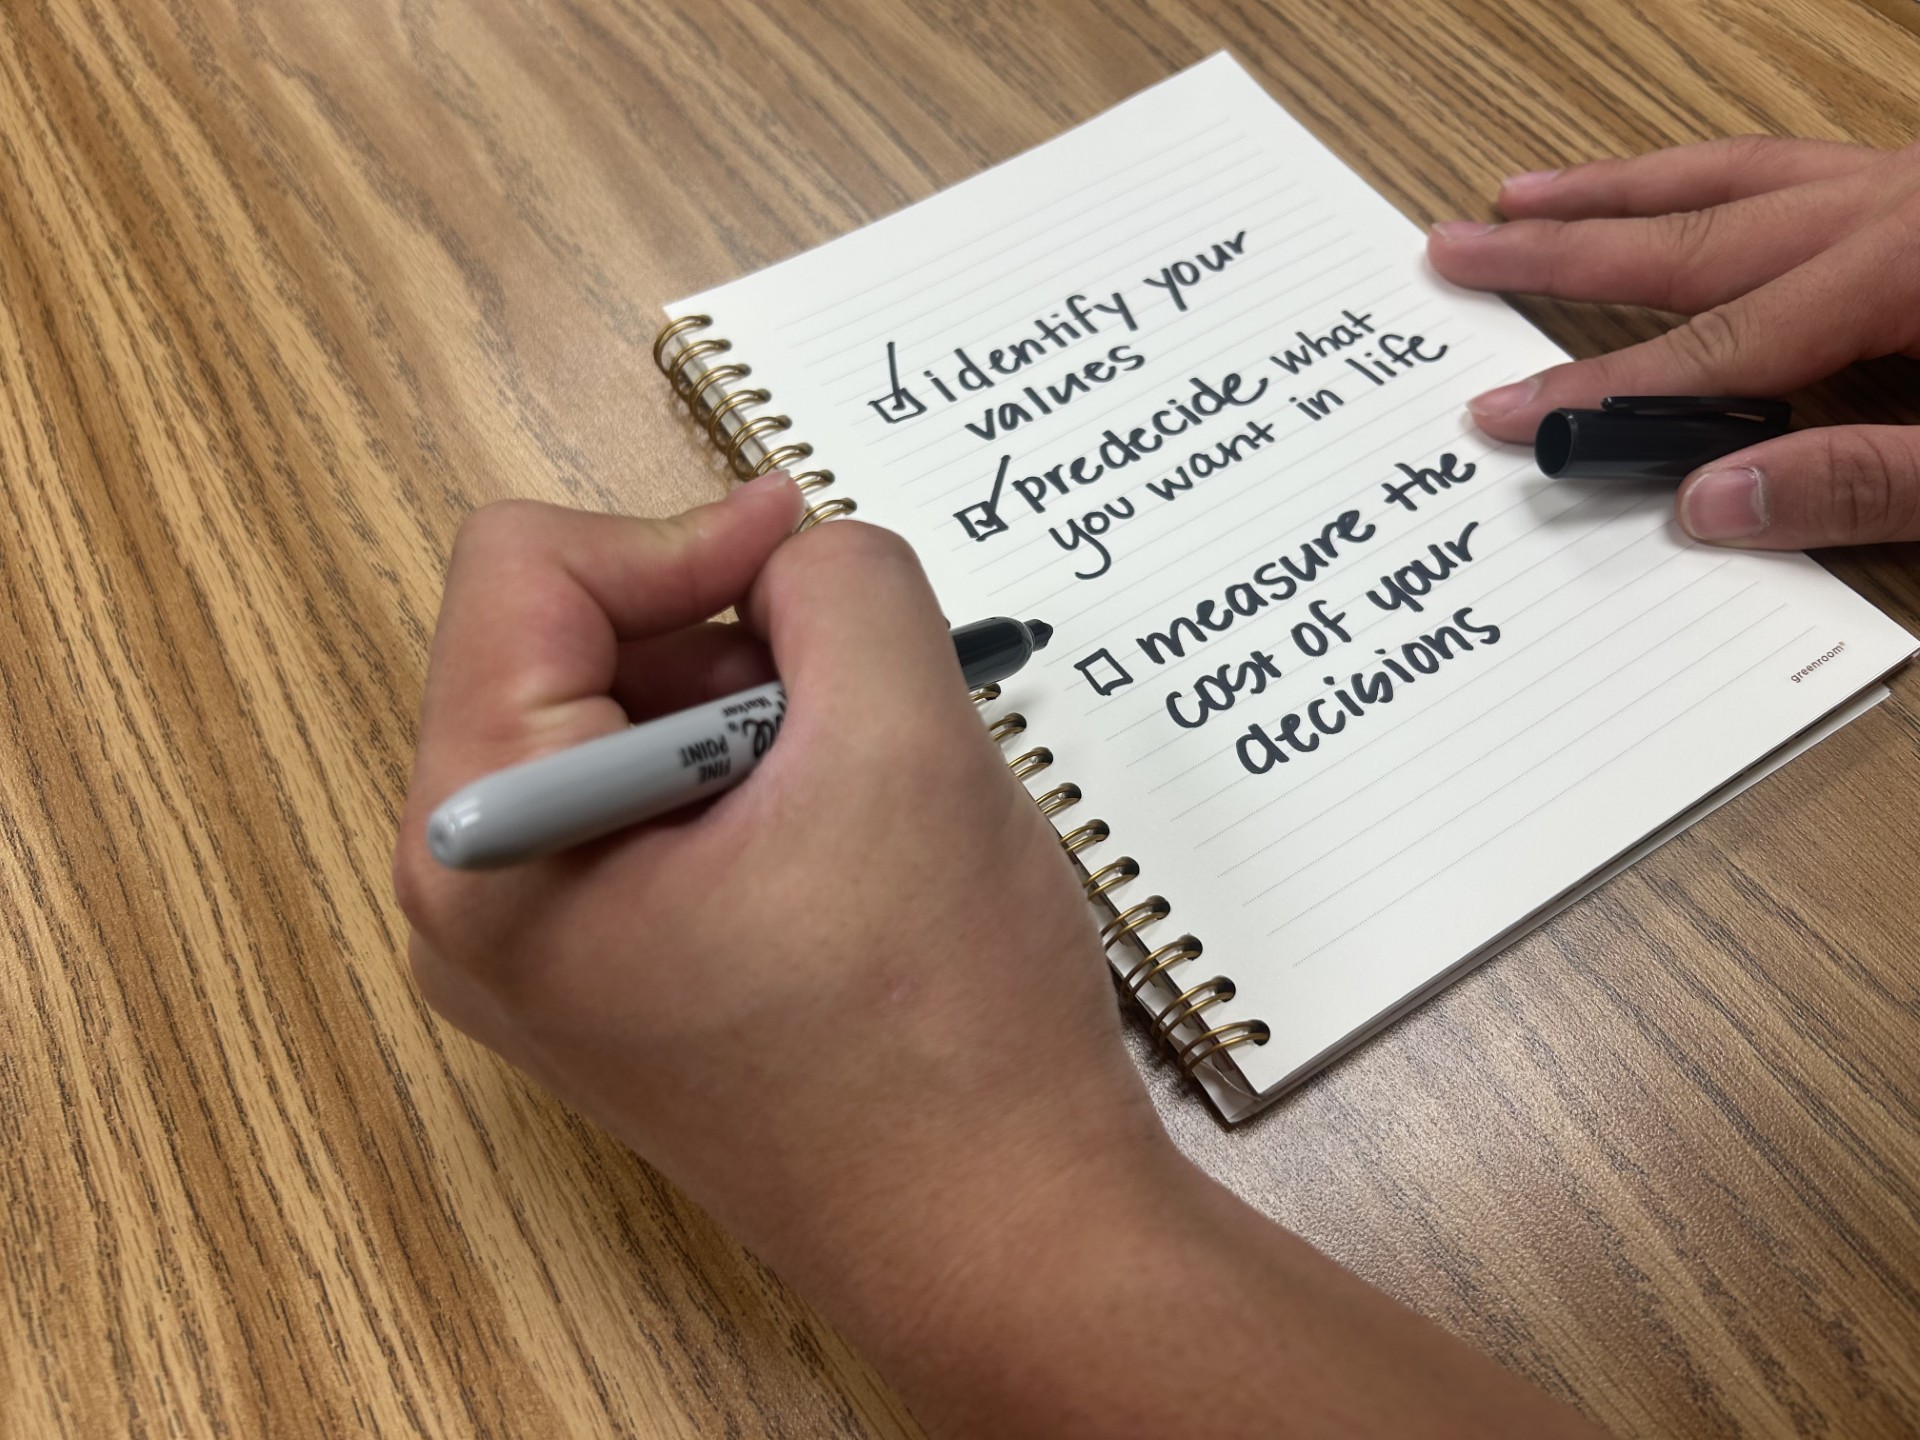 identify your
values
predecide what
you want in life
measure the
cost of your
decisions
greenroom®
Marker
FINE
POINT